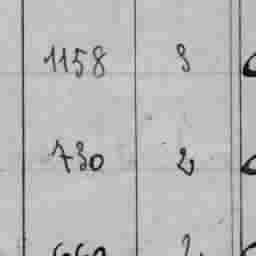 1158 3
730 2